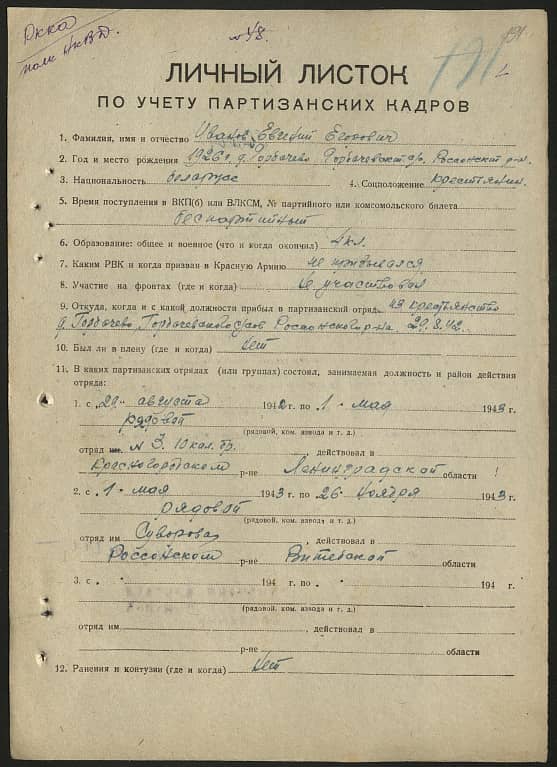 РККА
полк НКВД.
№ 48.
191
ЛИЧНЫЙ ЛИСТОК
ПО УЧЕТУ ПАРТИЗАНСКИХ КАДРОВ
1. Фамилия, имя и отчество Иванов Евгений
2. Год и место рождения 1926 г. д. Горбачево Россонский р-н
3. Национальность беларус 4. Соцположение крестьянин
5. Время поступления в ВКП(б) или ВЛКСМ, № партийного или комсомольского билета
беспартийный
6. Образование: общее и военное (что и когда окончил) 4 кл.
7. Каким РВК и когда призван в Красную Армию не призывался
8. Участие на фронтах (где и когда) Не участвовал
9. Откуда, когда и с какой должности прибыл в партизанский отряд из крестьянство
д. Горбачево, Горбачевского с/сов Россонского р-на. 29.8.42
10. Был ли в плену (где и когда) Нет
11. В каких партизанских отрядах (или группах) состоял, занимаемая должность и район действия
отряда:
1. с „29" августа 1942 г. по 1 - мая 1943 г.
рядовой
(рядовой, ком. взвода и т. д.)
отряд № 3. 10 кал. бр. , действовал в
Красногородском р-не Ленинградской области
2. с „1 - мая 1943 г. по 26 - ноября 1943 г.
рядовой
(рядовой, ком. взвода и т. д.)
отряд им Суворова , действовал в
Россонском р-не Витебской области
3. с „ 194 г. по „ 194 г.
(рядовой, ком. взвода и т. д.)
отряд им , действовал в
р-не области
12. Ранения и контузии (где и когда) Нет